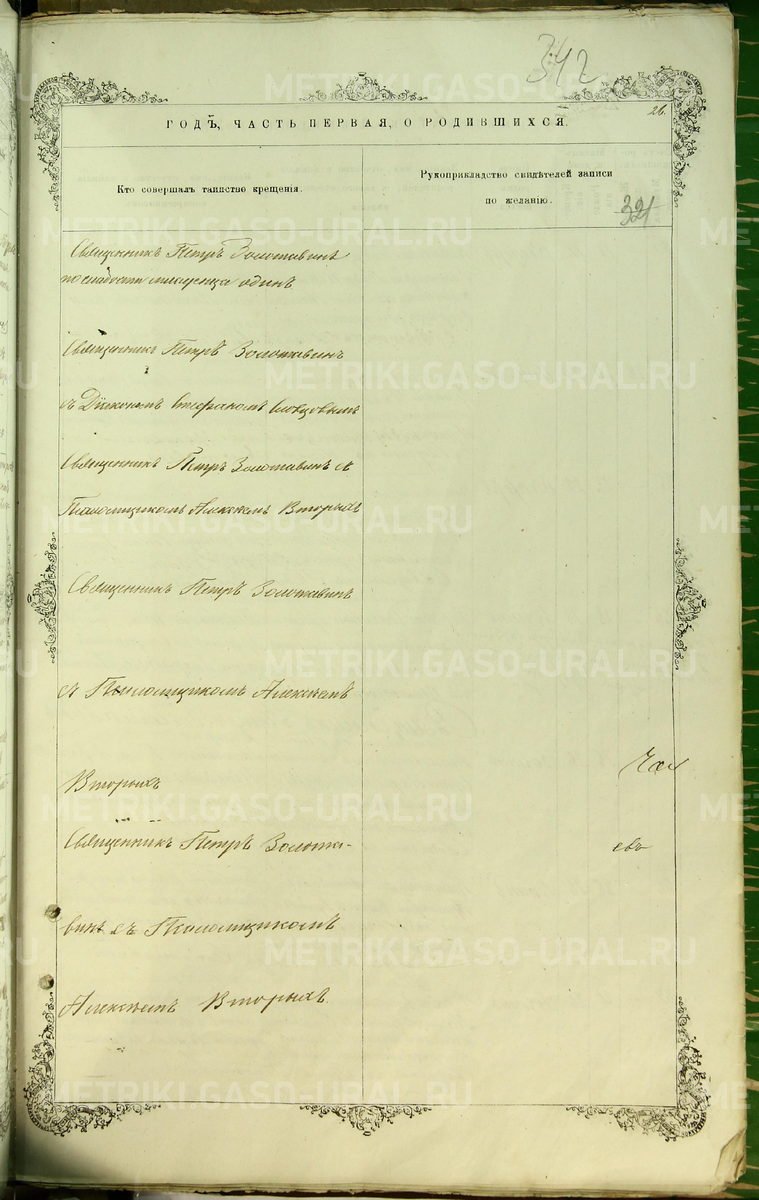 342
26.
ГОДЪ, ЧАСТЬ ПЕРВАЯ, О РОДИВШИХСЯ.
Кто совершалъ таинство крещенія.
Рукоприкладство свидѣтелей записи
по желанію.
321
Священникъ Петръ Золотавинъ
по слабости младенца одинъ
Священникъ Петръ Золотавинъ
съ Діакономъ Стефаномъ Словцовымъ
Священникъ Петръ Золотавинъ съ
Псаломщикомъ Алексѣемъ Вторыхъ
Священникъ Петръ Золотавинъ
съ Псаломщикомъ Алексѣемъ
Вторыхъ
Священникъ Петръ Золота-
винъ съ Псаломщикомъ
Алексѣемъ Вторыхъ
евъ
METRIKI.GASO-URAL.RU